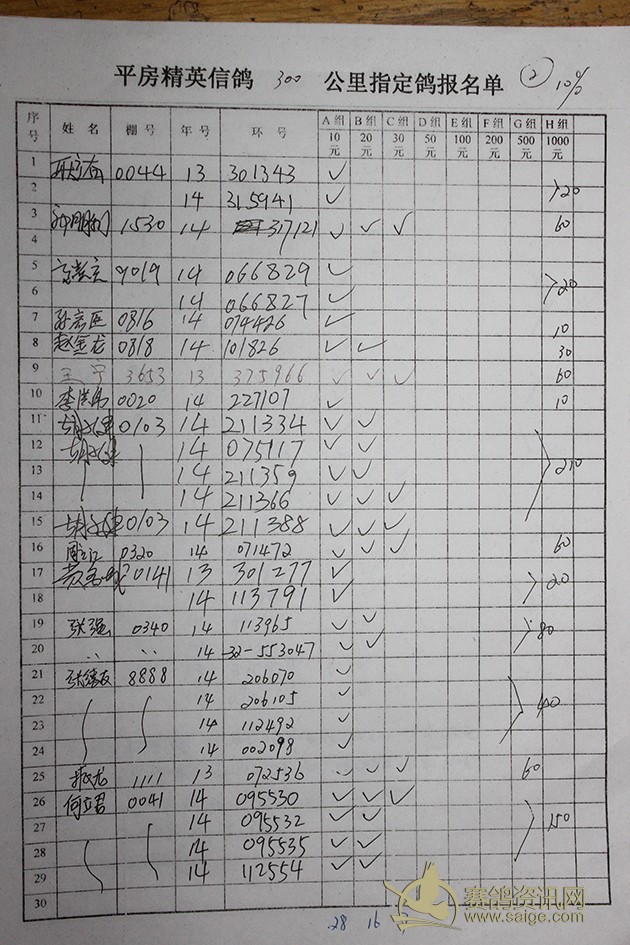 平房精英信鸽 300 公里指定鸽报名单 ② 10%
序号 姓名 棚号 年号 环号 A组10元 B组20元 C组30元 D组50元 E组100元 F组200元 G组500元 H组1000元
1 0044 13 301343 ✓
2 14 315941 ✓ >20
3 1530 14 317121 ✓ ✓ ✓ 60
4
5 9019 14 066829 ✓
6 14 066827 ✓ >20
7 0816 14 074426 ✓ 10
8 赵金龙 0818 14 101826 ✓ ✓ 30
9 王宁 3653 13 375966 ✓ ✓ ✓ 60
10 0020 14 227107 ✓ 10
11 0103 14 211334 ✓ ✓
12 14 075117 ✓ ✓
13 14 211359 ✓ ✓ >210
14 14 211366 ✓ ✓ ✓
15 0103 14 211388 ✓ ✓ ✓
16 0320 14 071472 ✓ ✓ ✓ 60
17 0141 13 301277 ✓
18 14 113791 ✓ >20
19 张强 0340 14 113965 ✓ ✓
20 〃 〃 14 32-553047 ✓ ✓ >80
21 8888 14 206070 ✓
22 14 206105 ✓ >40
23 14 112492 ✓
24 14 002098 ✓
25 1111 13 072536 ✓ ✓ ✓ 60
26 何立君 0041 14 095530 ✓ ✓ ✓
27 14 095532 ✓ ✓ >150
28 14 095535 ✓ ✓
29 14 112554 ✓ ✓
30
28 16
赛鸽资讯网
www.saige.com